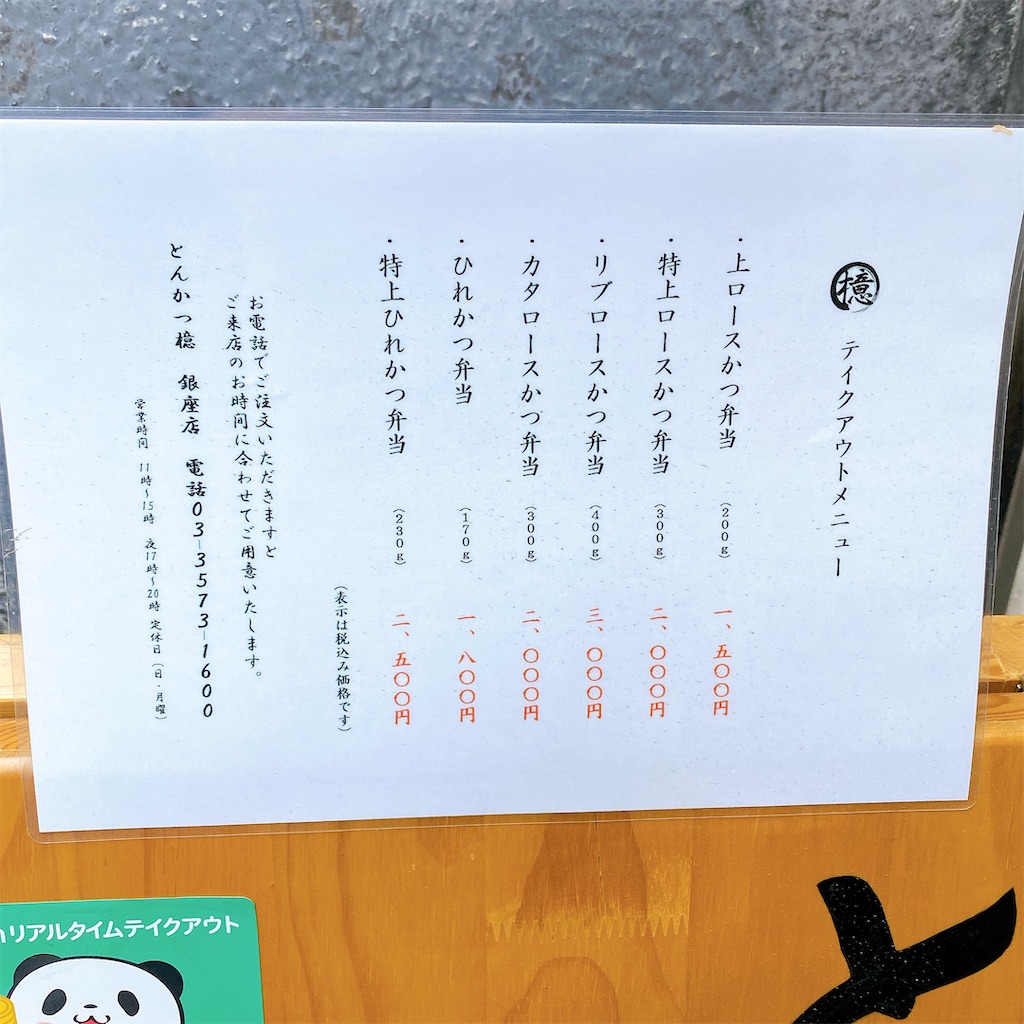 檍 テイクアウトメニュー
・上ロースかつ弁当 (200g) 一、五〇〇円
・特上ロースかつ弁当 (300g) 二、〇〇〇円
・リブロースかつ弁当 (400g) 三、〇〇〇円
・カタロースかつ弁当 (300g) 二、〇〇〇円
・ひれかつ弁当 (170g) 一、八〇〇円
・特上ひれかつ弁当 (230g) 二、五〇〇円
(表示は税込み価格です)
お電話でご注文いただきますと
ご来店のお時間に合わせてご用意いたします。
とんかつ檍 銀座店 電話03-3573-1600
営業時間 11時~15時 夜17時~20時 定休日(日・月曜)
リアルタイムテイクアウト
と